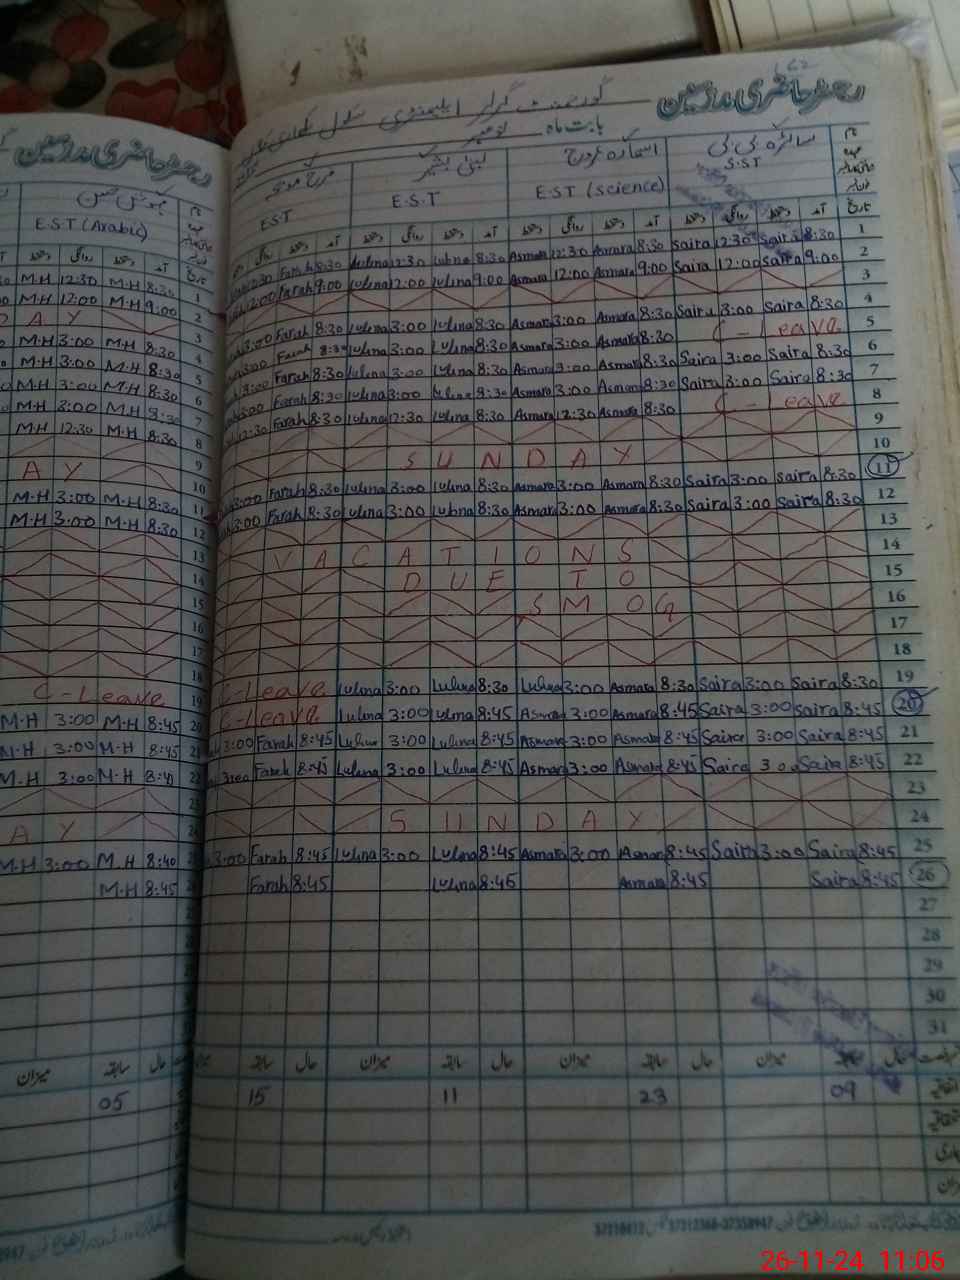 رجسٹر حاضری مدرسین
گورنمنٹ گرلز ایلیمنٹری سکول
بابت ماہ نومبر
نام
سائرہ بی بی
لبنیٰ بشیر
S.S.T
E.S.T (Science)
E.S.T
E.S.T
تاریخ آمد دستخط روانگی دستخط آمد دستخط روانگی دستخط آمد دستخط روانگی دستخط آمد دستخط روانگی
Farah 8:30 Lubna 12:30 Lubna 8:30 Asmara 12:30 Asmara 8:30 Saira 12:30 Saira 8:30 1
12:00 Farah 9:00 Lubna 12:00 Lubna 9:00 Asmara 12:00 Asmara 9:00 Saira 12:00 Saira 9:00 2
3
3:00 Farah 8:30 Lubna 3:00 Lubna 8:30 Asmara 3:00 Asmara 8:30 Saira 3:00 Saira 8:30 4
3:00 Farah 8:30 Lubna 3:00 Lubna 8:30 Asmara 3:00 Asmara 8:30 C-Leave 5
3:00 Farah 8:30 Lubna 3:00 Lubna 8:30 Asmara 3:00 Asmara 8:30 Saira 3:00 Saira 8:30 6
3:00 Farah 8:30 Lubna 3:00 Lubna 8:30 Asmara 3:00 Asmara 8:30 Saira 3:00 Saira 8:30 7
12:30 Farah 8:30 Lubna 12:30 Lubna 8:30 Asmara 12:30 Asmara 8:30 C-Leave 8
9
SUNDAY 10
3:00 Farah 8:30 Lubna 3:00 Lubna 8:30 Asmara 3:00 Asmara 8:30 Saira 3:00 Saira 8:30 11
3:00 Farah 8:30 Lubna 3:00 Lubna 8:30 Asmara 3:00 Asmara 8:30 Saira 3:00 Saira 8:30 12
13
VACATIONS 14
DUE TO 15
SMOG 16
17
18
C-Leave Lubna 3:00 Lubna 8:30 Lubna 3:00 Asmara 8:30 Saira 3:00 Saira 8:30 19
C-Leave Lubna 3:00 Lubna 8:45 Asmara 3:00 Asmara 8:45 Saira 3:00 Saira 8:45 20
3:00 Farah 8:45 Lubna 3:00 Lubna 8:45 Asmara 3:00 Asmara 8:45 Saira 3:00 Saira 8:45 21
3:00 Farah 8:45 Lubna 3:00 Lubna 8:45 Asmara 3:00 Asmara 8:45 Saira 3:00 Saira 8:45 22
23
SUNDAY 24
3:00 Farah 8:45 Lubna 3:00 Lubna 8:45 Asmara 3:00 Asmara 8:45 Saira 3:00 Saira 8:45 25
Farah 8:45 Lubna 8:45 Asmara 8:45 Saira 8:45 26
27
28
29
30
31
حال سابقہ میزان حال سابقہ میزان حال سابقہ میزان حال سابقہ میزان
15 11 23 09
رجسٹر حاضری مدرسین
نام
E.S.T (Arabic)
تاریخ آمد دستخط روانگی دستخط
M.H 12:30 M.H 8:30 1
M.H 12:00 M.H 9:00 2
A Y 3
M.H 3:00 M.H 8:30 4
M.H 3:00 M.H 8:30 5
M.H 3:00 M.H 8:30 6
M.H 3:00 M.H 7
M.H 12:30 M.H 8:30 8
9
A Y 10
M.H 3:00 M.H 8:30 11
M.H 3:00 M.H 8:30 12
13
14
15
16
17
18
C-Leave 19
M.H 3:00 M.H 8:45 20
M.H 3:00 M.H 8:45 21
M.H 3:00 M.H 22
23
A Y 24
M.H 3:00 M.H 8:40 25
M.H 8:45
حال سابقہ میزان
05
26-11-24 11:06